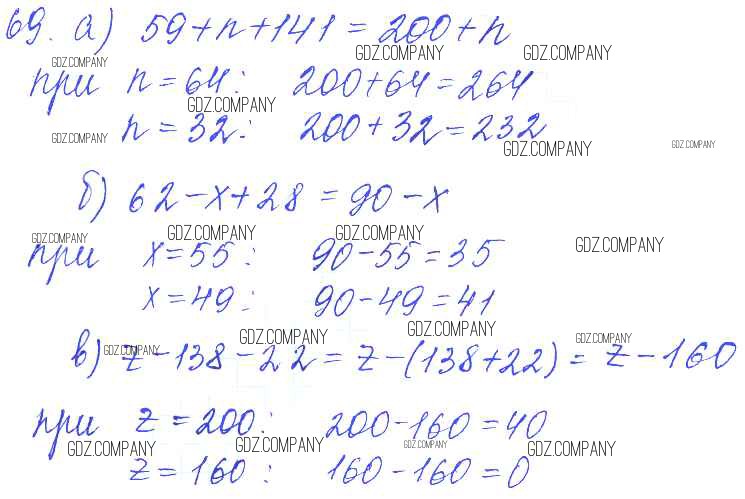 69. а) 59+n+141=200+n
GDZ.COMPANY GDZ.COMPANY GDZ.COMPANY
при n=64: 200+64=264
GDZ.COMPANY
n=32: 200+32=232
GDZ.COMPANY GDZ.COMPANY GDZ.COMPANY
б) 62-x+28=90-x
GDZ.COMPANY GDZ.COMPANY GDZ.COMPANY GDZ.COMPANY
при x=55: 90-55=35
x=49: 90-49=41
GDZ.COMPANY GDZ.COMPANY GDZ.COMPANY GDZ.COMPANY
в) z-138-22=z-(138+22)=z-160
при z=200: 200-160=40
GDZ.COMPANY GDZ.COMPANY GDZ.COMPANY GDZ.COMPANY
z=160: 160-160=0